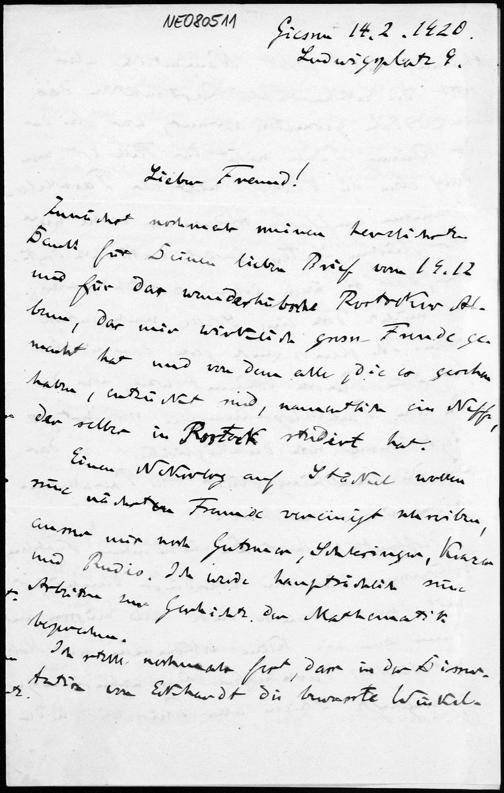 NE080511
Giessen 14.2.1920.
Ludwigsplatz 9.
Lieber Freund!
Zunächst nochmals meinen herzlichsten
Dank für Deinen lieben Brief vom 19.12
und für das wunderhübsche Rostocker Al-
bum, das mir wirklich grosse Freude ge-
macht hat und von dem alle, die es gesehen
haben, entzückt sind, namentlich ein Neffe,
der selber in Rostock studiert hat.
Einen Nekrolog auf Stäckel wollen
seine nächsten Freunde vereinigt schreiben,
ausser mir noch Gutzmer, Schlesinger, Krazer
und Rudio. Ich werde hauptsächlich seine
Arbeiten zur Geschichte der Mathematik
besprechen.
Ich stelle nochmals fest, dass in der Disser-
tation von Eckhardt die bewusste Winkel-